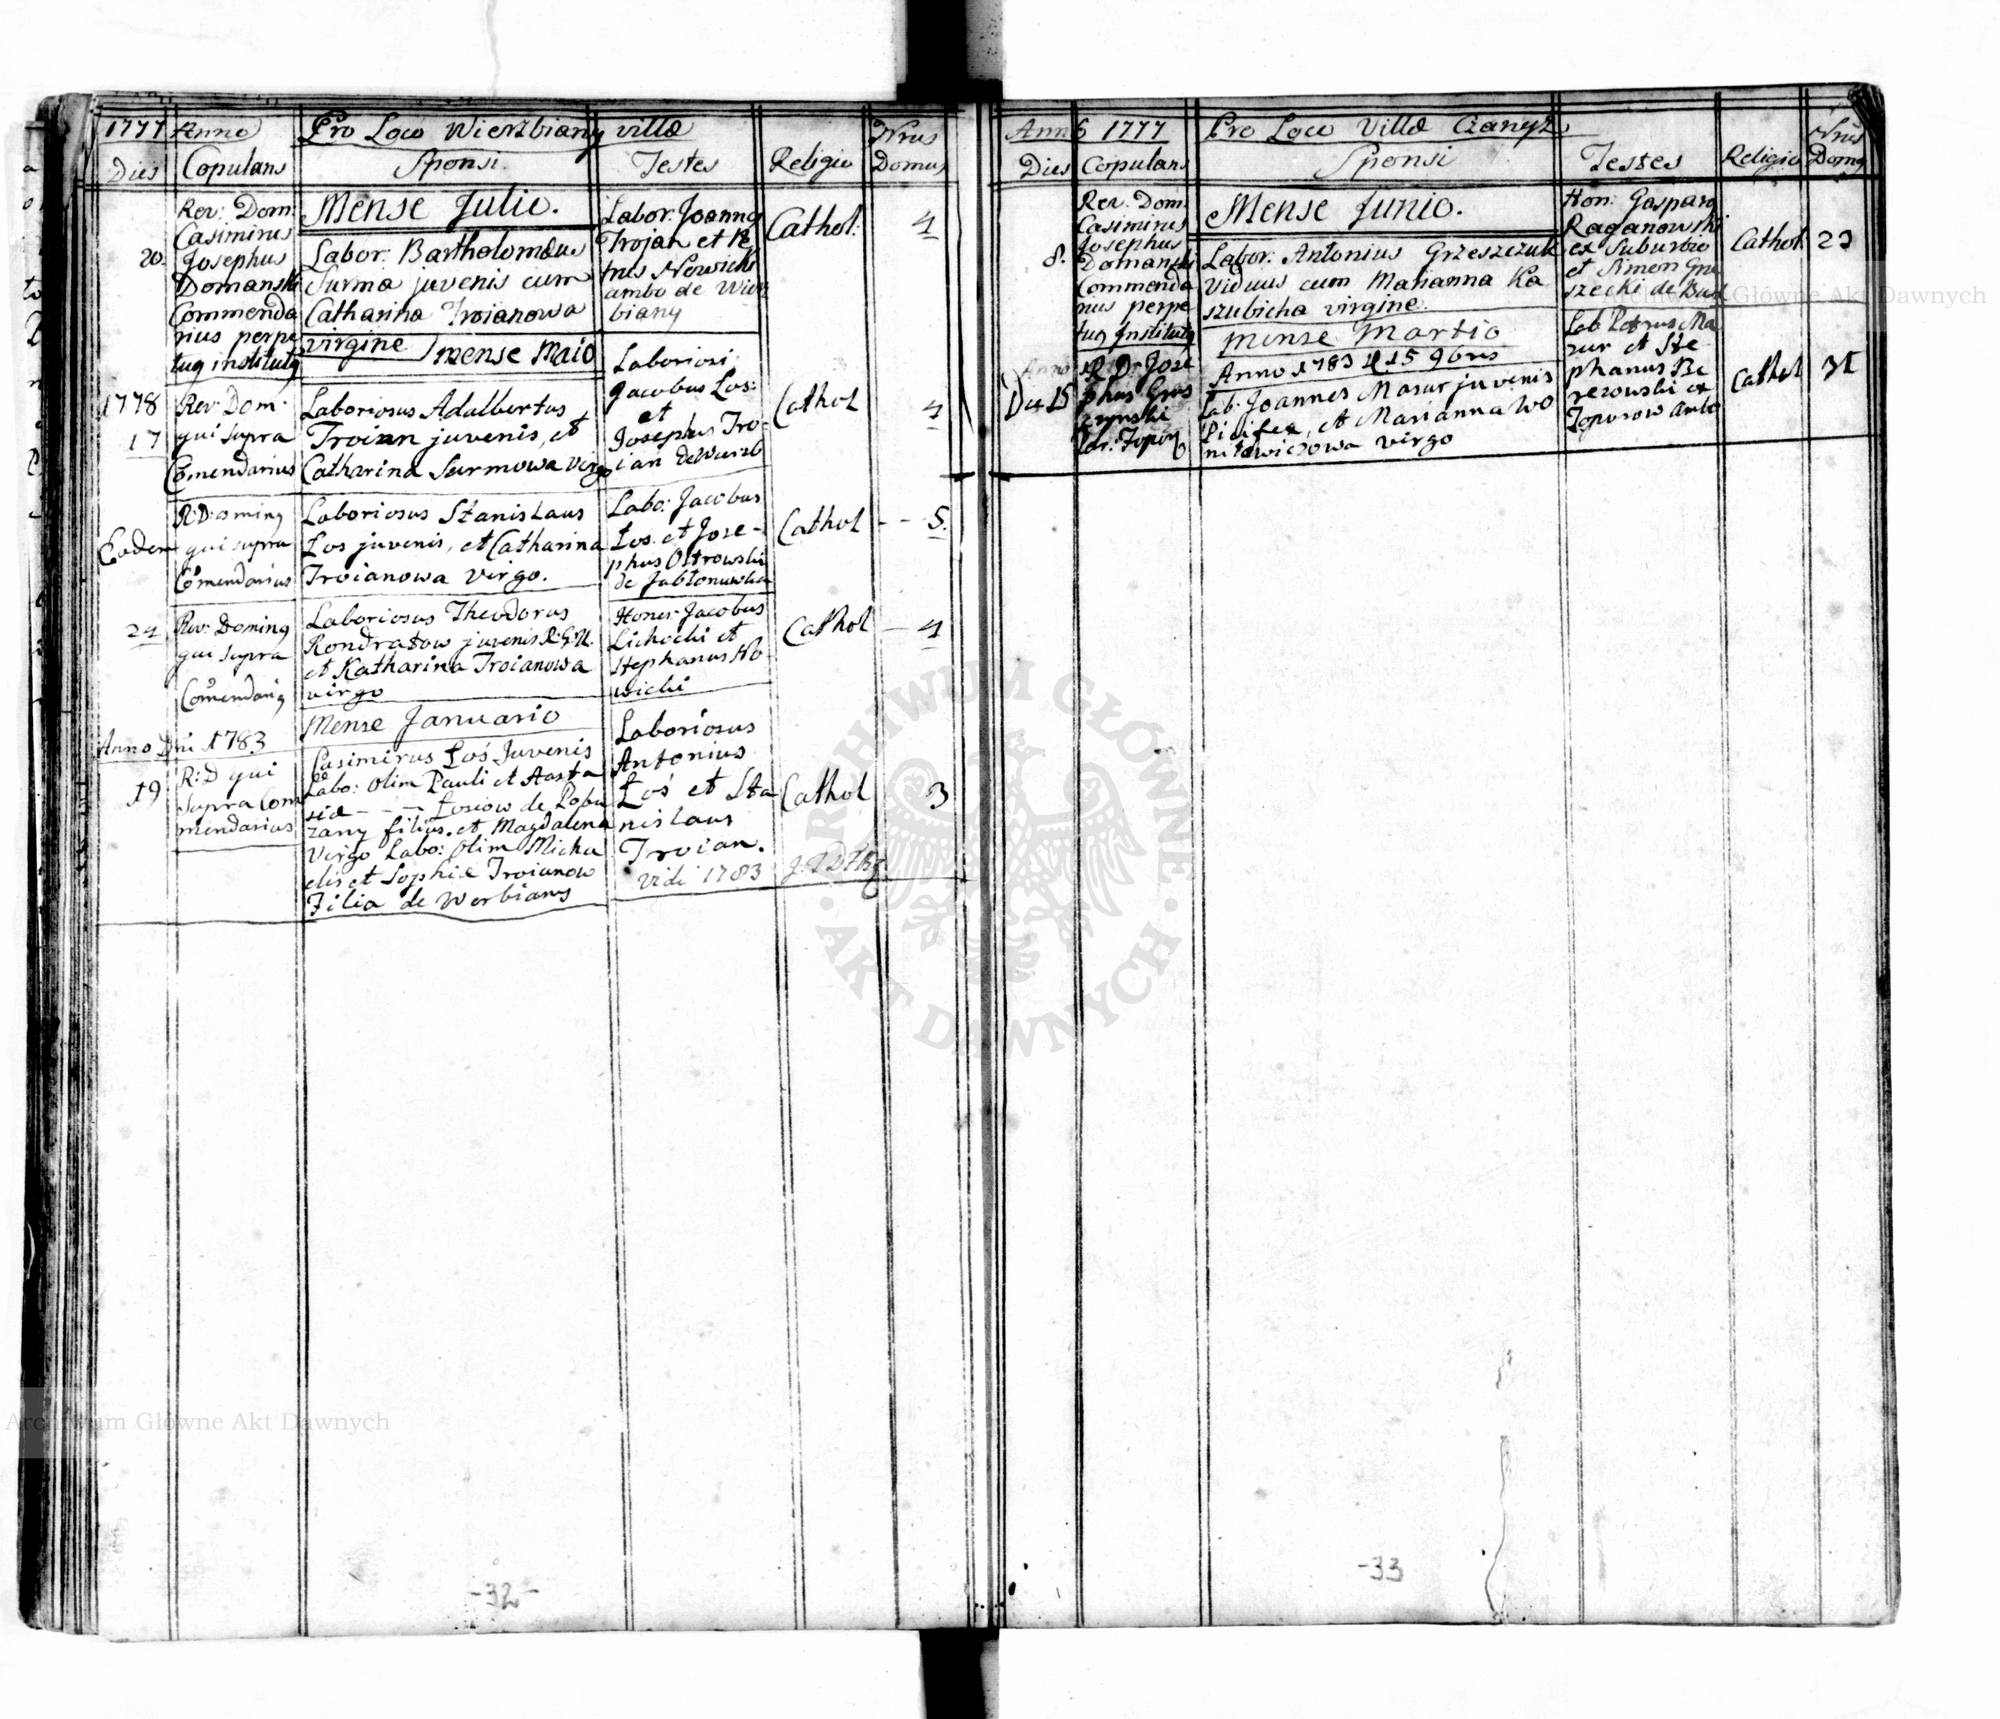 1777 Anno Pro Loco Wierzbiany villæ Nrus
Dies Copulans Sponsi Testes Religio Domus
20.
Rev: Dom:
Casimirus
Josephus
Domanski
Commenda
rius perpe
tuq institutq
Mense Julio.
Labor: Bartholomæus
Surma juvenis cum
Catharina Troianowa
virgine
Labor: Joannq
Trojan et Pe
trus Nowicki
ambo de Wierz
biany
Cathol:
4
mense Maio
1778
17
Rev: Dom:
qui supra
Comendarius
Laboriosus Adalbertus
Troian juvenis, et
Catharina Surmowa virgo
Laboriosi
Jacobus Los:
et
Josephus Tro-
ian de Wierzb
Cathol
4
Eodem
R:D:oming
qui supra
Comendarius
Laboriosus Stanislaus
Los juvenis, et Catharina
Troianowa virgo.
Labo: Jacobus
Łos. et Jose-
phus Ostrowski
de Jabłonowka
Cathol - - 5.
24
Rev: Doming
qui supra
Comendariq
Laboriosus Theodorus
Kondratow juvenis R:G:U.
et Katharina Troianowa
virgo
Hones: Jacobus
Lichocki et
Stephanus No-
wicki
Cathol - 4
Mense Januario
Anno Dni 1783
19
R:D qui
supra Com
mendarius
Casimirus Łoś Juvenis
Labo: olim Pauli et Anasta
siæ - - - Łosiow de Pobu
zany filius. et Magdalena
Virgo Labo: olim Micha
elis et Sophiæ Troianow
Filia de Werbiany
Laboriosus
Antonius
Łoś et Sta
nislaus
Troian.
Vidi 1783
Cathol
3
-32-
Anno 1777 Pro Loco Villæ Czanyz Nrus
Dies Copulans Sponsi Testes Religio Domq
8.
Rev: Dom:
Casimirus
Josephus
Domanski
Commenda
rius perpe
tuq Institutq
Mense Junio.
Labor: Antonius Grzeszczuk
viduus cum Marianna Ka
szubicha virgine.
Hon: Gasparq
Raganowski
ex Suburbio
et Simon Gnu
szecki de Busk
Cathol:
23
mense Martio
Anno 1783 15 9bris
Anno
Die 15
R. D. Jose
phus Grus
Par: Topor
Lab: Joannes Mazur juvenis
et Marianna Wo
nitowiczowa virgo
Lab Petrus Ma
zur et Ste
phanus Be
rezowski ex
Toporow ambo
Cathol
31
-33
Archiwum Główne Akt Dawnych
ARCHIWUM GŁÓWNE AKT DAWNYCH
Archiwum Główne Akt Dawnych